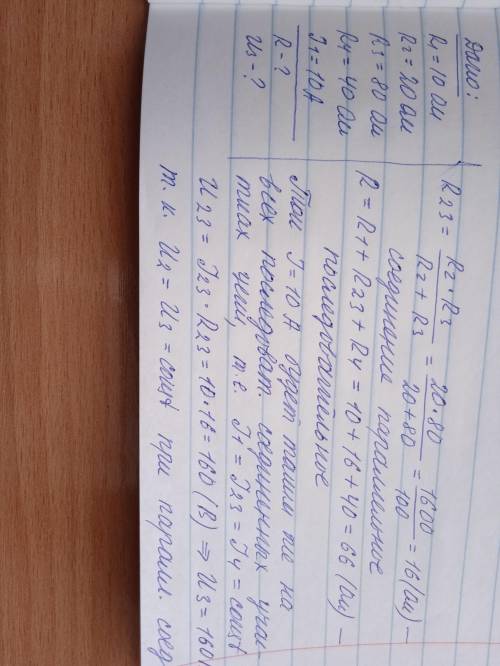 Дано:
R1 = 10 Ом
R2 = 20 Ом
R3 = 80 Ом
R4 = 40 Ом
I1 = 10 А
R - ?
U3 - ?
R23 = R2·R3 / R2 + R3 = 20·80 / 20+80 = 1600 / 100 = 16 (Ом) —
соединение параллельное
R = R1 + R23 + R4 = 10 + 16 + 40 = 66 (Ом) —
последовательное
Ток I = 10 А будет таким же на
всех последоват. соединенных учас-
тках цепи, т.е. I1 = I23 = I4 = const
U23 = I23 · R23 = 10·16 = 160 (В) ⇒ U3 = 160
т.к. U2 = U3 = const при паралл. соед